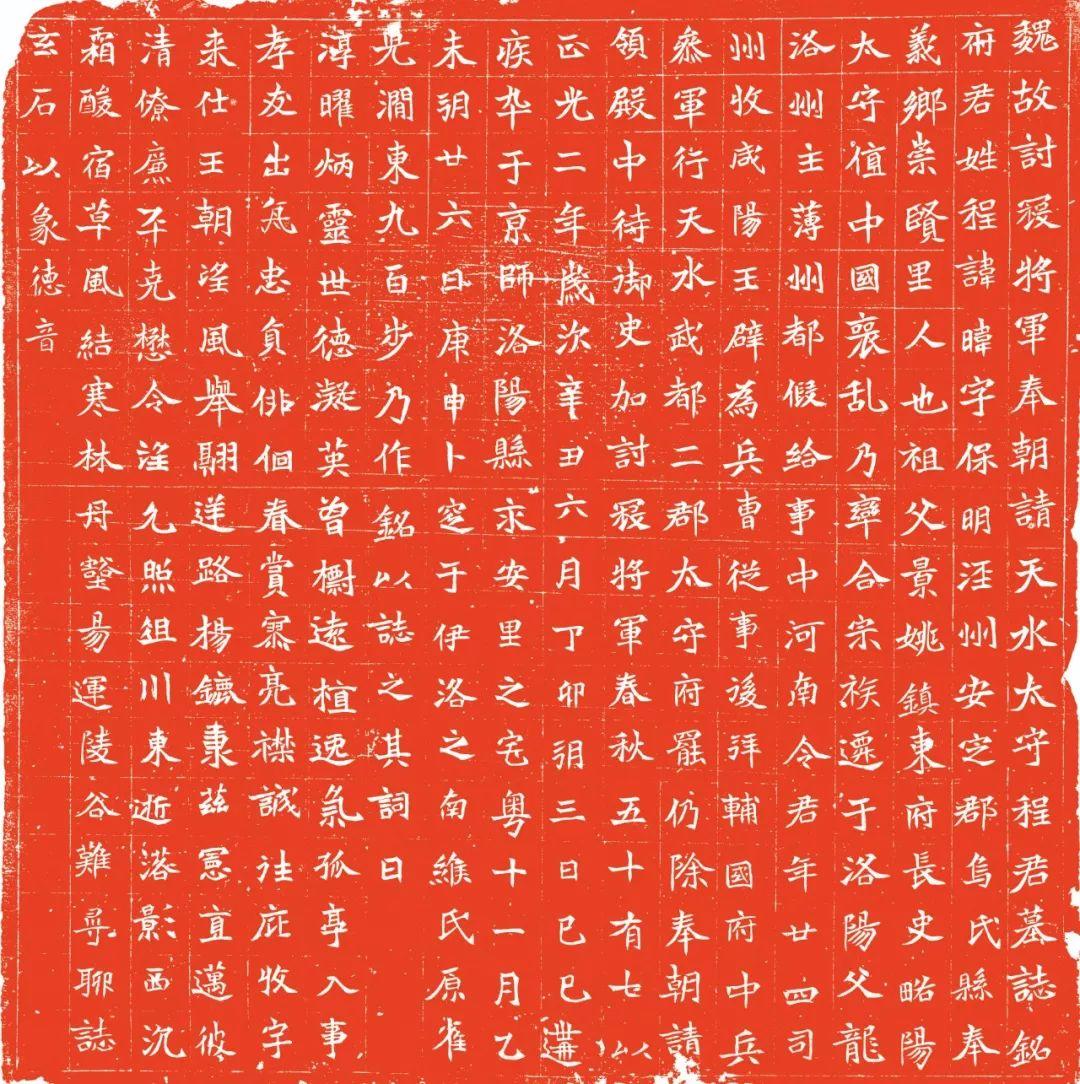 魏故討寇將軍奉朝請天水太守程君墓誌銘
府君姓程諱暐字保明涇州安定郡烏氏縣奉
義鄉崇賢里人也祖父景姚鎮東府長史略陽
太守值中國衰乱乃率合宗族遷于洛陽父龍
洛州主薄州都假給事中河南令君年廿四司
州牧咸陽王辟為兵曹從事後拜輔國府中兵
叅軍行天水武都二郡太守府罷仍除奉朝請
領殿中待御史加討寇將軍春秋五十有七以
正光二年歲次辛丑六月丁卯朔三日己巳遘
疾卒于京師洛陽縣永安里之宅粵十一月乙
未朔廿六日庚申卜窆于伊洛之南緱氏原雀
兒澗東九百步乃作銘以誌之其詞曰
淳曜炳靈世德凝英曾櫥遠植逸氣孤亭入事
孝友出為忠貞俳佪眷賞寮亮襟誠往庇牧字
来仕王朝望風舉翮送路揚鑣秉茲憲直邁彼
清僚廉平克懋令望允照徂川東逝落影西沉
霜酸宿草風結寒林丹壑易運陵谷難尋聊誌
玄石以象德音